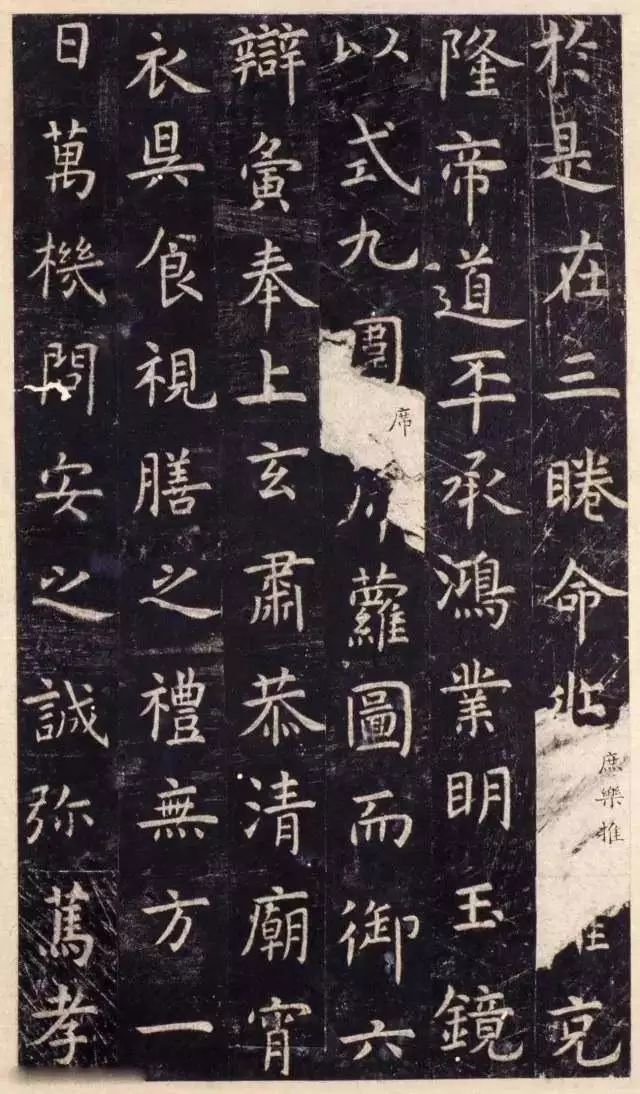 於是在三眷命非
庶樂推
推克
隆帝道丕承鴻業明玉鏡
以式九圍
席
蘿圖而御六
辯䝉奉上玄肅恭清廟宵
衣昃食視膳之禮無方一
日萬機問安之誠弥篤孝